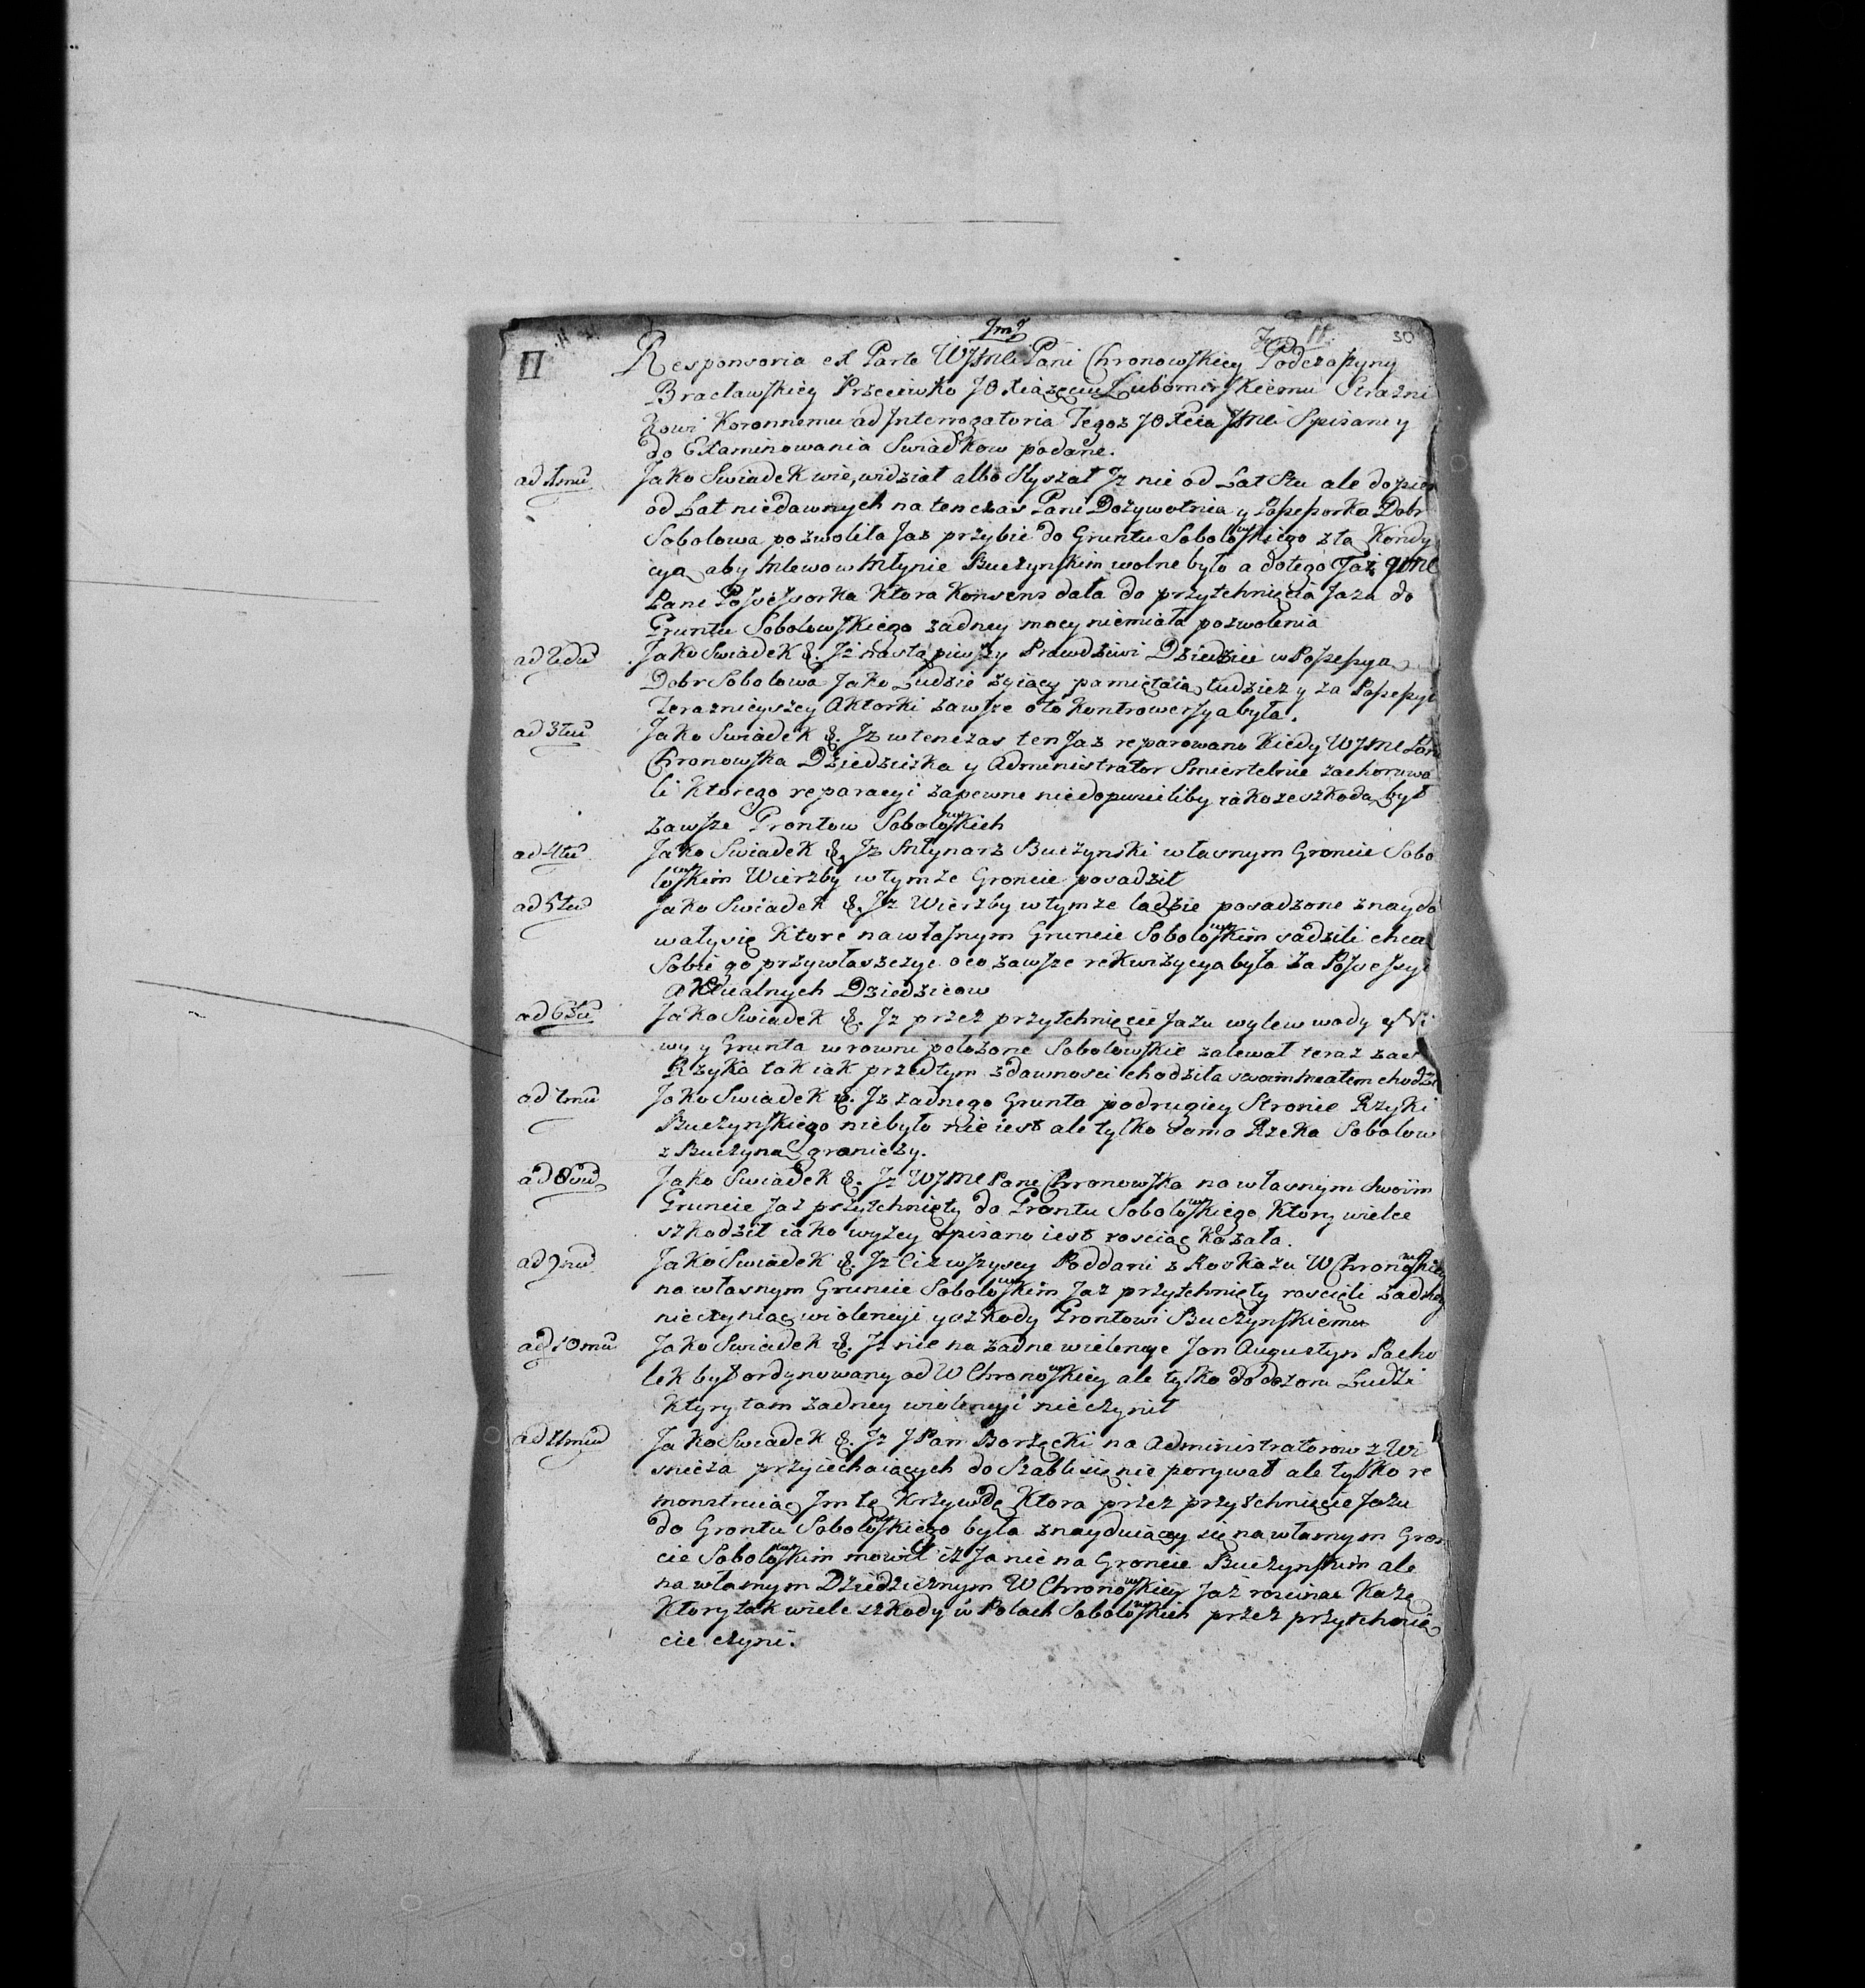 ImJ
II
Fm 11. 30
Responsoria ex Parte WJMCi Pani Chronowskiey Podczaszyny
Bracławskiey Przeciwko JO Xiążęciu Lubomirskiemu Strażni
kowi Koronnemu ad Interrogatoria Tegoz JO Xcia JMCi Spisane y
do Examinowania Swiadkow podane.
ad 1mũ Jako Swiadek wie, widział albo słyszał Jz nie od Lat Stu ale dopier
od Lat niedawnych na ten czas Pani Dożywotnica y Possessorka Dobr
Sobolowa pozwoliła Jaz przybić do Gruntu Sobolowskiego z tą Kondy
cyą aby Mlewo w Młynie Buczynskim wolne było a do tego Taż JMC
Pani Possessorka Ktora Konsens dała do przytchnięcia Jazu do
Gruntu Sobolowskiego zadney mocy niemiała pozwolenia
ad 2dũ Jako Swiadek &. Jż nastąpiwszy Prawdziwi Dziedzice w Possessyą
Dobr Sobolowa Jako Ludzie żyiący pamiętaią tudzież y za Possessyi
teraznieyszey Aktorki zawsze o to kontrowersya była.
ad 3tiũ Jako Swiadek &. Jz w tenczas ten Jaz reparowano Kiedy WJMC Pani
Chronowska Dziedziczka y Administrator Smiertelnie zachorowa
li Ktorego reparacyi zapewne niedopuscililby iako ze szkodą był
zawsze Grontow Sobolowskich
ad 4tũ Jako Swiadek &. Jz Młynarz Buczynski własnym Groncie Sobo
lowskim Wierzby w tymze Groncie posadził
ad 5tũ Jako Swiadek &. Jz Wierzby w tymze ladzie posadzone znaydo
wały się Ktore na własnym Gruncie Sobolowskim sadzili chcąc
Sobie go przywłaszczyc o co zawsze rekwizycya była za Possessyi
Aktualnych Dziedzicow
ad 6tũ Jako Swiadek &. Jz przez przytchnięcie Jazu wylew wody y Ni
wy y Grunta w rowni położone Sobolowskie zalewał teraz zas
Rzyka tak iak przedtym z dawnosci chodziła swoim meatem chodzi
ad 7mũ Jako Swiadek &. Jz zadnego Grunta podrugiey Stronie Rzyki
Buczynskiego niebyło nie iest ale tylko sama Rzeka Sobolow
z Buczyną graniczy.
ad 8vũ Jako Swiadek &. Jz WJMC Pani Chronowska na własnym swoim
Gruncie Jaz przytchnięty do Grontu Sobolowskiego Ktory wielce
szkodził iako wyżey opisano iest rosciąc Kazała.
ad 9nũ Jako Swiadek &. Jz Ciz wszyscy Poddani z Roskazu W Chronowskiey
na własnym Gruncie Sobolowskim Jaz przytchnięty roscieli żadney
nie czyniąc wiolencyi y szkody Grontowi Buczynskiemu
ad 10mũ Jako Swiadek &. Jz nie na żadne wiolencye Jan Augustyn Pacho
lek był ordynowany od W Chronowskiey ale tylko do dozoru Ludzi
Ktyry tam zadney wiolencyi nieczynił
ad 11mũ Jako Swiadek &. Jz JPan Borzęcki na Administratorow z Wi
snicza przyiechaiących do Szabli się nie porywał ale tylko re
monstruiąc Jm tę Krzywdę Ktora przez przytchnięcie Jazu
do Grontu Sobolowskiego była znayduiący się na własnym Gron
cie Sobolowskim mowił iż Ja nie na Groncie Buczynskim ale
na własnym Dziedzicznym W Chronowskiey Jaz roscinac Kazę
Ktory tak wiele szkody w Polach Sobolowskich przez przytchnię
cie czyni.